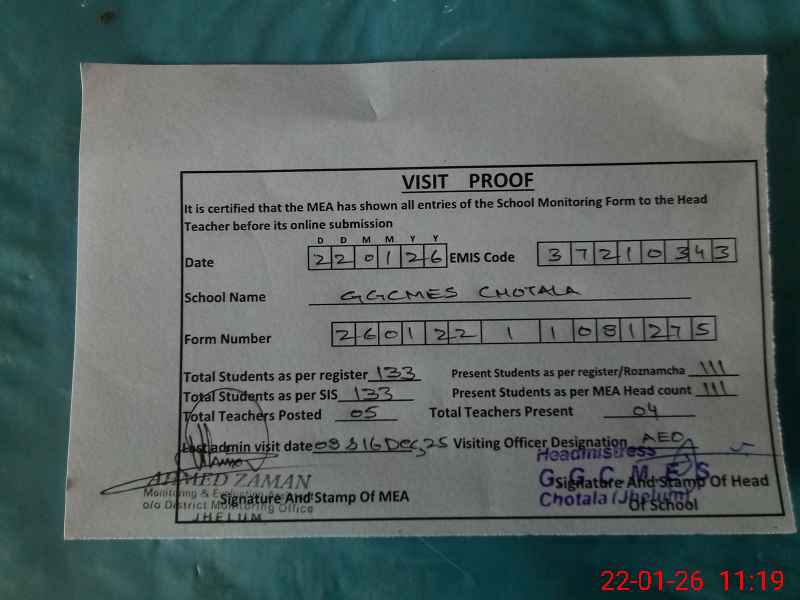 VISIT PROOF
It is certified that the MEA has shown all entries of the School Monitoring Form to the Head
Teacher before its online submission
D D M M Y Y
Date 2 2 0 1 2 6 EMIS Code 3 7 2 1 0 3 4 3
School Name GGCMES CHOTALA
Form Number 2 6 0 1 2 2 1 1 0 8 1 2 7 5
Total Students as per register 133 Present Students as per register/Roznamcha 111
Total Students as per SIS 133 Present Students as per MEA Head count 111
Total Teachers Posted 05 Total Teachers Present 04
Last admin visit date 09 & 16 Dec, 25 Visiting Officer Designation AEO
Headmistress
AHMED ZAMAN G. G. C. M. E. S
Signature And Stamp Of Head
Monitoring &
Signature And Stamp Of MEA Chotala (Jhelum)
o/o District Monitoring Office Of School
JHELUM
22-01-26 11:19